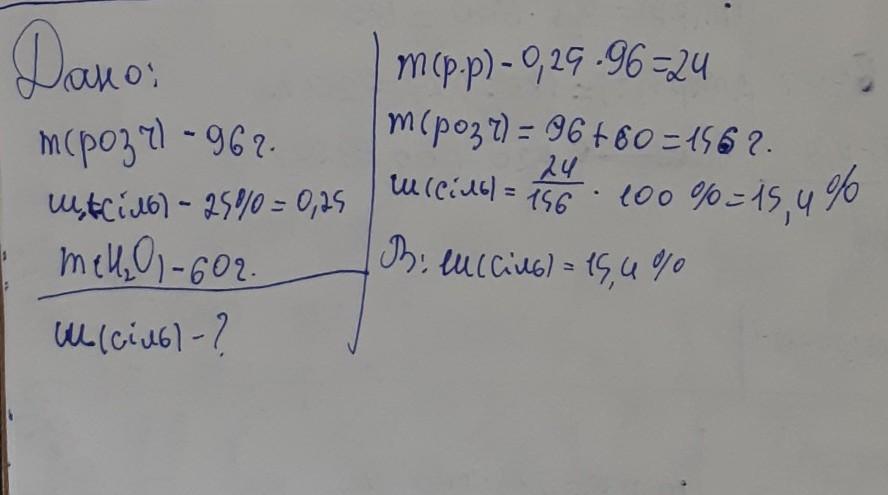 Дано:
m(розч) - 96 г.
ω(сіль) - 25% = 0,25
m(H₂O) - 60 г.
ω(сіль) - ?
m(р.р) - 0,25 · 96 = 24
m(розч) = 96 + 60 = 156 г.
ω(сіль) = 24/156 · 100 % = 15,4 %
В: ω(сіль) = 15,4 %